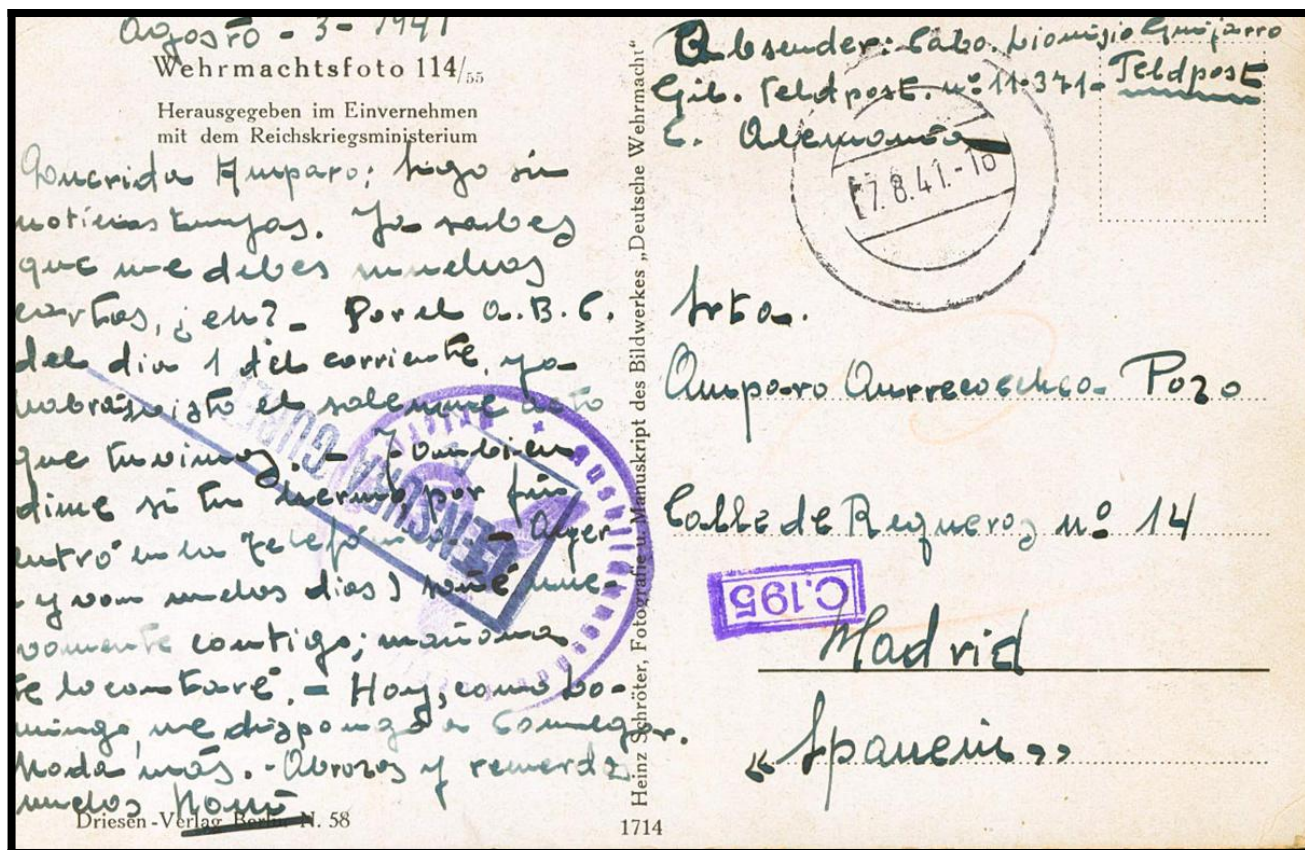 Agosto - 3 - 1941
Wehrmachtsfoto 114/55
Herausgegeben im Einvernehmen
mit dem Reichskriegsministerium
Querida Amparo: Sigo sin
noticias tuyas. Ya sabes
que me debes muchas
cartas, ¿eh? - Por el A.B.C.
del dia 1 del corriente, ya
habras visto el solemne acto
que tuvimos. - Tambien
dime si tu hermo, por fin
entró en la Telefónica. - Ayer
y van muchos dias) soñé nue-
vamente contigo; mañana
te lo contaré. - Hoy, como Do-
mingo, me dispongo a comulgar.
Nada más. - Abrazos y recuerdos
muchos
Driesen-Verlag Berlin N. 58
Heinz Schröter, Fotografie u. Manuskript des Bildwerkes „Deutsche Wehrmacht"
1714
Absender: Cabo. Dionisio Guijarro
Gil. Feldpost. nº 11.371- Feldpost
Alemania
7.8.41.-18
Srta.
Amparo Aurrecoechea Pozo
Calle de Regueros nº 14
C.195
Madrid
« Spanein »
CENSURA GUBER
Auslandsstelle